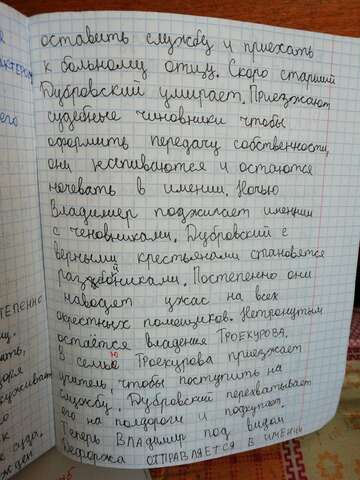 оставить службу и приехать
к больному отцу. Скоро старший
Дубровский умирает. Приезжают
судебные чиновники чтобы
оформить передачу собственности,
они напиваются и остаются
ночевать в имении. Ночью
Владимер поджигает имении
с ченовниками. Дубровский с
верными крестьянами становятся
разбойниками. Постепенно они
наводят ужас на всех
окрестных помещиков. Нетронутым
остаётся владения ТРОЕКУРОВА.
В семью ТРОЕКУРОВА приезжает
учитель, чтобы поступить на
службу. Дубровский перехватывает
его на полдороги и подкупает.
Теперь ВЛАДИМЕР под видом
Дефоржа ОТПРАВЛЯЕТСЯ В ИМЕНИЕ
его
СТЕПЕННО